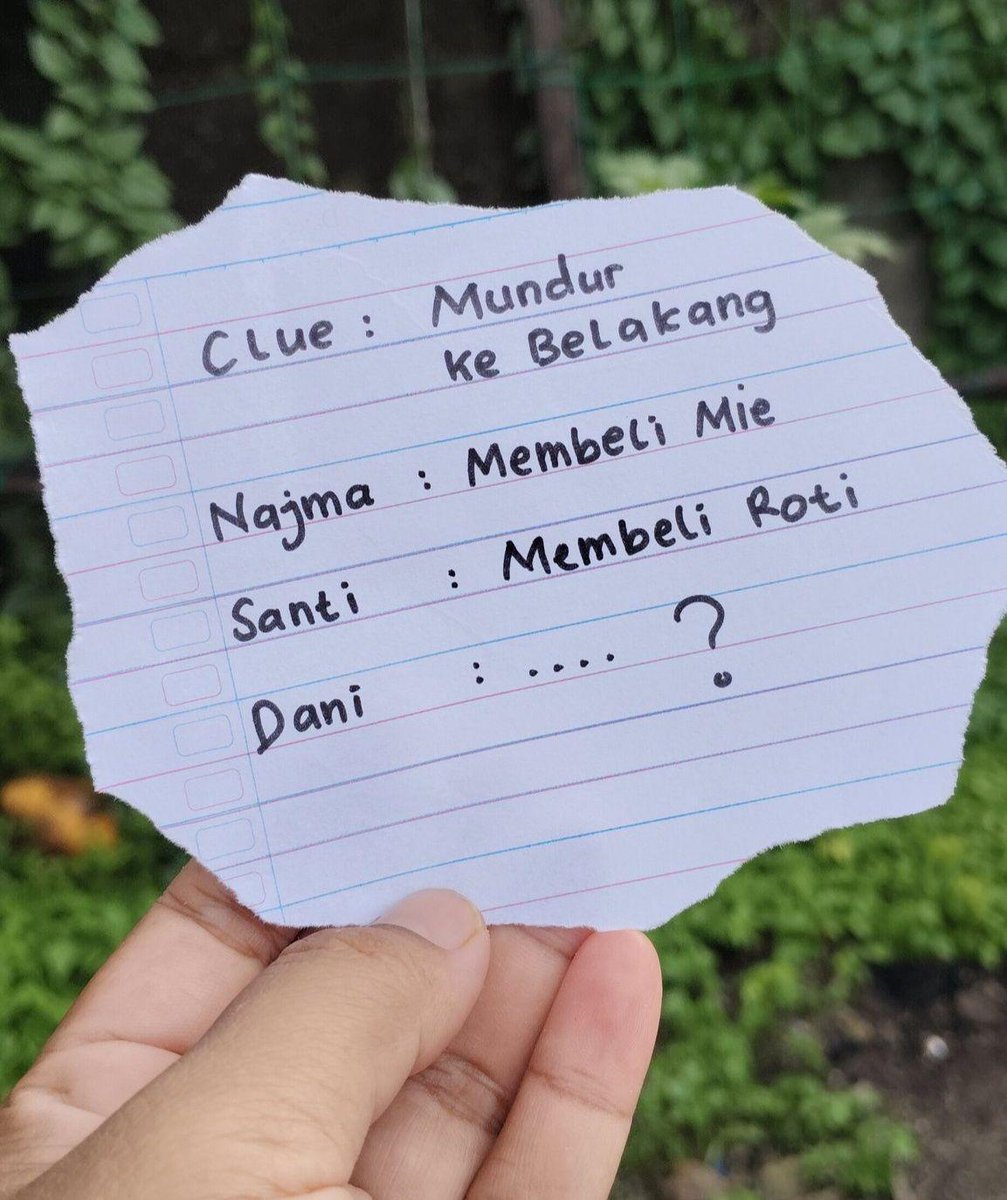 Clue : Mundur
ke Belakang
Najma : Membeli Mie
Santi : Membeli Roti
Dani : .... ?